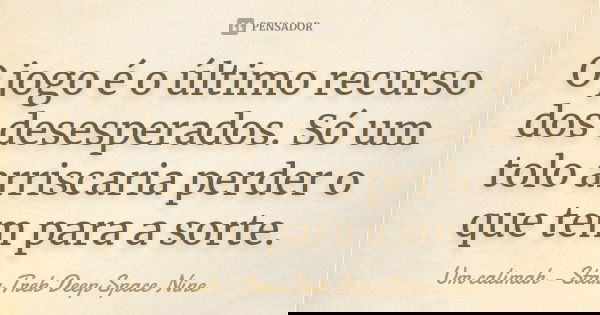 PENSADOR
O jogo é o último recurso
dos desesperados. Só um
tolo arriscaria perder o
que tem para a sorte.
Um calimah - Star
Trek Deep Space Nine